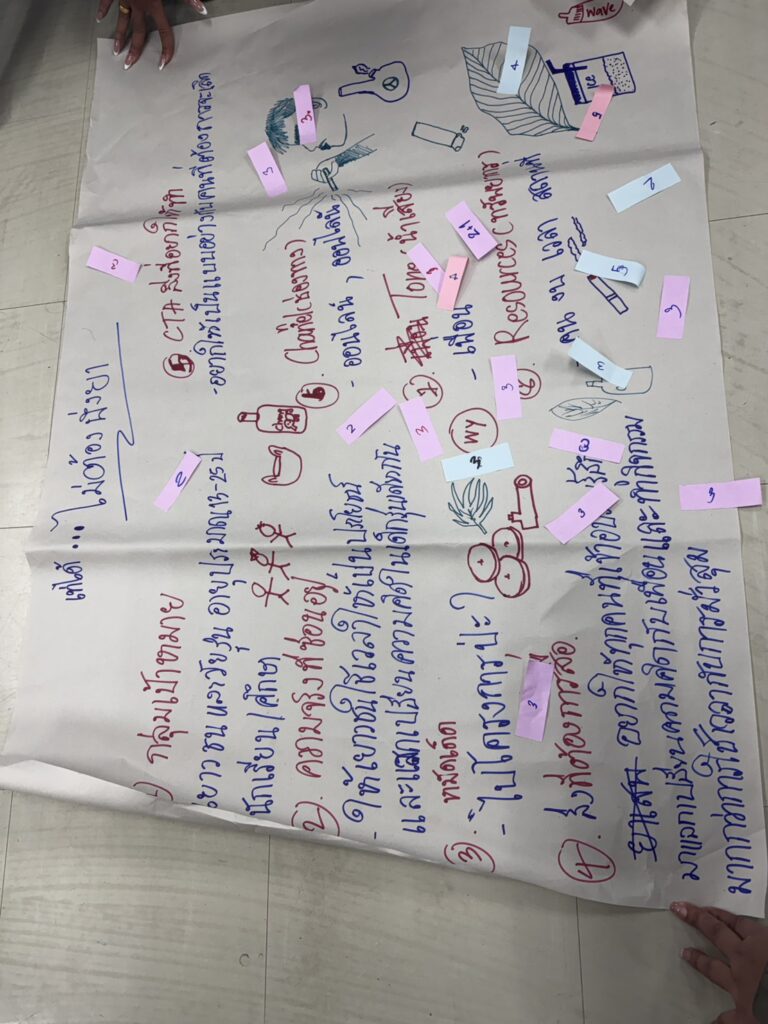 เท่ได้ ... ไม่ต้องพึ่งยา
1) กลุ่มเป้าหมาย
เยาวชน และวัยรุ่น อายุประมาณ 13-25 ปี
นักเรียน/ศึกษา
2). ความจริงที่ซ่อนอยู่
- ให้เยาวชนใช้เวลาให้เป็นประโยชน์
และแลกเปลี่ยนความคิดในเด็กรุ่นเดียวกัน
3).
- ไปโครงการป่ะ?
4). สิ่งที่ต้องการสื่อ.
อยากให้ทุกคนที่เข้าอบรม
มาแลกเปลี่ยนความคิดกับเพื่อนและทำกิจกรรม
มากกว่าการใช้เวลากับการมั่วสุม
5 CTA สิ่งที่อยากให้ทำ
6. Channel (ช่องทาง)
- ออนไลน์, ออนไลน์
7. Tone น้ำเสียง)
- เพื่อน
8. Resources (ทรัพยากร)
คน งบ เวลา สถานที่
WY
ICE
Wave
3
3
3
3
2
3
3
2+1
3
3
3
3
4
5